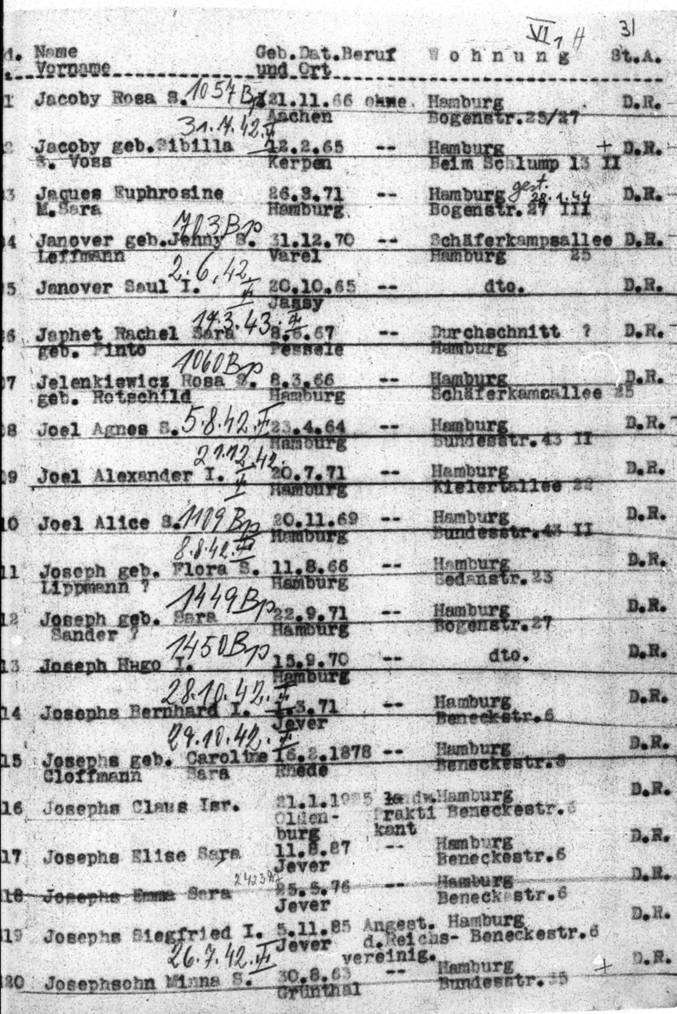 VI, H 31
d. Name Geb.Dat.Beruf Wohnung St.A.
Vorname und Ort
1 Jacoby Rosa S. 1057 Bp 21.11.66 ohne. Hamburg D.R.
Aachen Bogenstr.25/27
31.7.42.
2 Jacoby geb.Sibilla 12.2.65 -- Hamburg + D.R.
s. Voss Kerpen Beim Schlump 13 II
03 Jaques Euphrosine 26.3.71 -- Hamburg gest. 28.1.44 D.R.
M.Sara Hamburg Bogenstr.27 III
703 Bp
04 Janover geb.Jenny S. 31.12.70 -- Schäferkampsallee D.R.
Leffmann Varel Hamburg 25
2.6.42
05 Janover Saul I. 20.10.65 -- dto. D.R.
Jassy
3.43.
06 Japhet Rachel Sara 8.6.67 -- Durchschnitt ? D.R.
geb. Pinto Pessele Hamburg
1060 Bp
07 Jelenkiewicz Rosa S. 8.3.66 -- Hamburg D.R.
geb. Rotschild Hamburg Schäferkamcallee 25
08 Joel Agnes S. 5.8.42. 23.4.64 -- Hamburg D.R.
Hamburg Bundesstr.43 II
09 Joel Alexander I. 20.7.71 -- Hamburg D.R.
Hamburg Kielertallee 22
10 Joel Alice S. 1109 Bp 20.11.69 -- Hamburg D.R.
Hamburg Bundesstr.43 II
8.8.42.
11 Joseph geb. Flora S. 11.8.66 -- Hamburg D.R.
Lippmann ? Hamburg Sedanstr.23
1449 Bp
12 Joseph geb. Sara 22.9.71 -- Hamburg D.R.
Sander ? Hamburg Bogenstr.27
1450 Bp
13 Joseph Hugo I. 15.9.70 -- dto. D.R.
Hamburg
28.10.42.
14 Josephs Bernhard I. 1.3.71 -- Hamburg D.R.
Jever Beneckestr.6
29.10.42.
15 Josephs geb. Caroline 16.2.1878 -- Hamburg D.R.
Cloffmann Sara Rhede Beneckestr.6
16 Josephs Claus Isr. 21.1.1925 landw. Hamburg D.R.
Olden- frakti Beneckestr.6
burg kant
17 Josephs Elise Sara 11.8.87 -- Hamburg D.R.
Jever Beneckestr.6
118 Josephs Emma Sara 25.5.76 -- Hamburg D.R.
Jever Beneckestr.6
119 Josephs Siegfried I. 5.11.85 Angest. Hamburg D.R.
Jever d.Reichs- Beneckestr.6
vereinig.
26.7.42.
120 Josephsohn Minna S. 30.8.63 -- Hamburg + D.R.
Grünthal Bundesstr.35